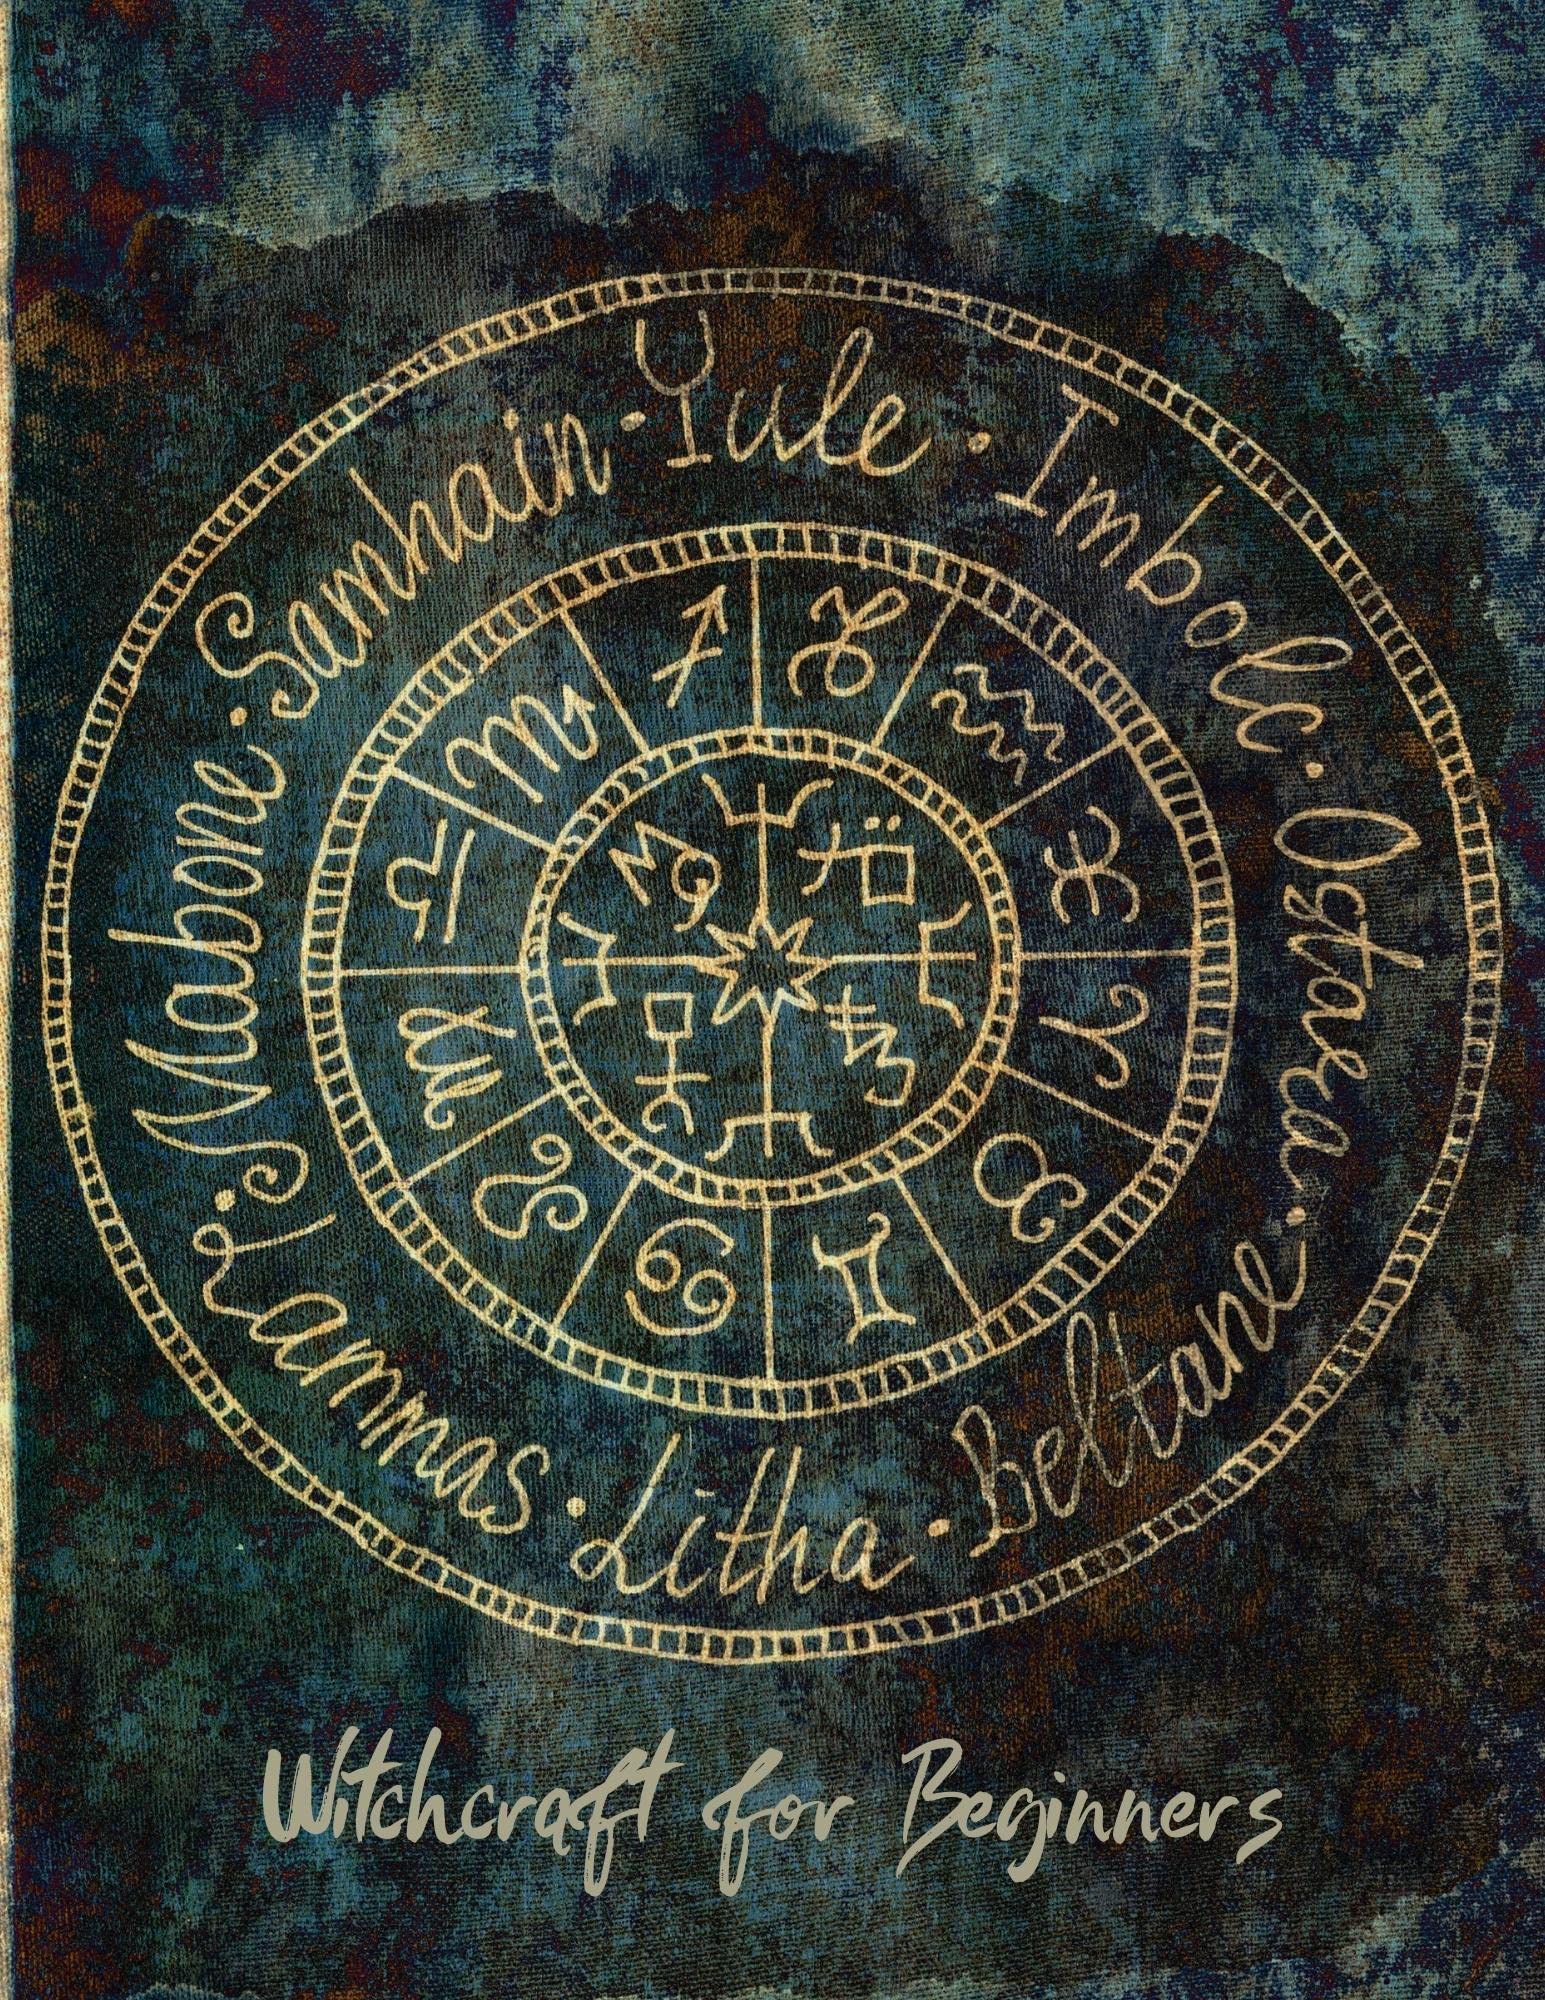 Yule · Imbolc · Ostara · Beltane · Litha · Lammas · Mabone · Samhain ·
♑ ♒ ♓ ♈ ♉ ♊ ♋ ♌ ♍ ♎ ♏ ♐
Witchcraft for Beginners